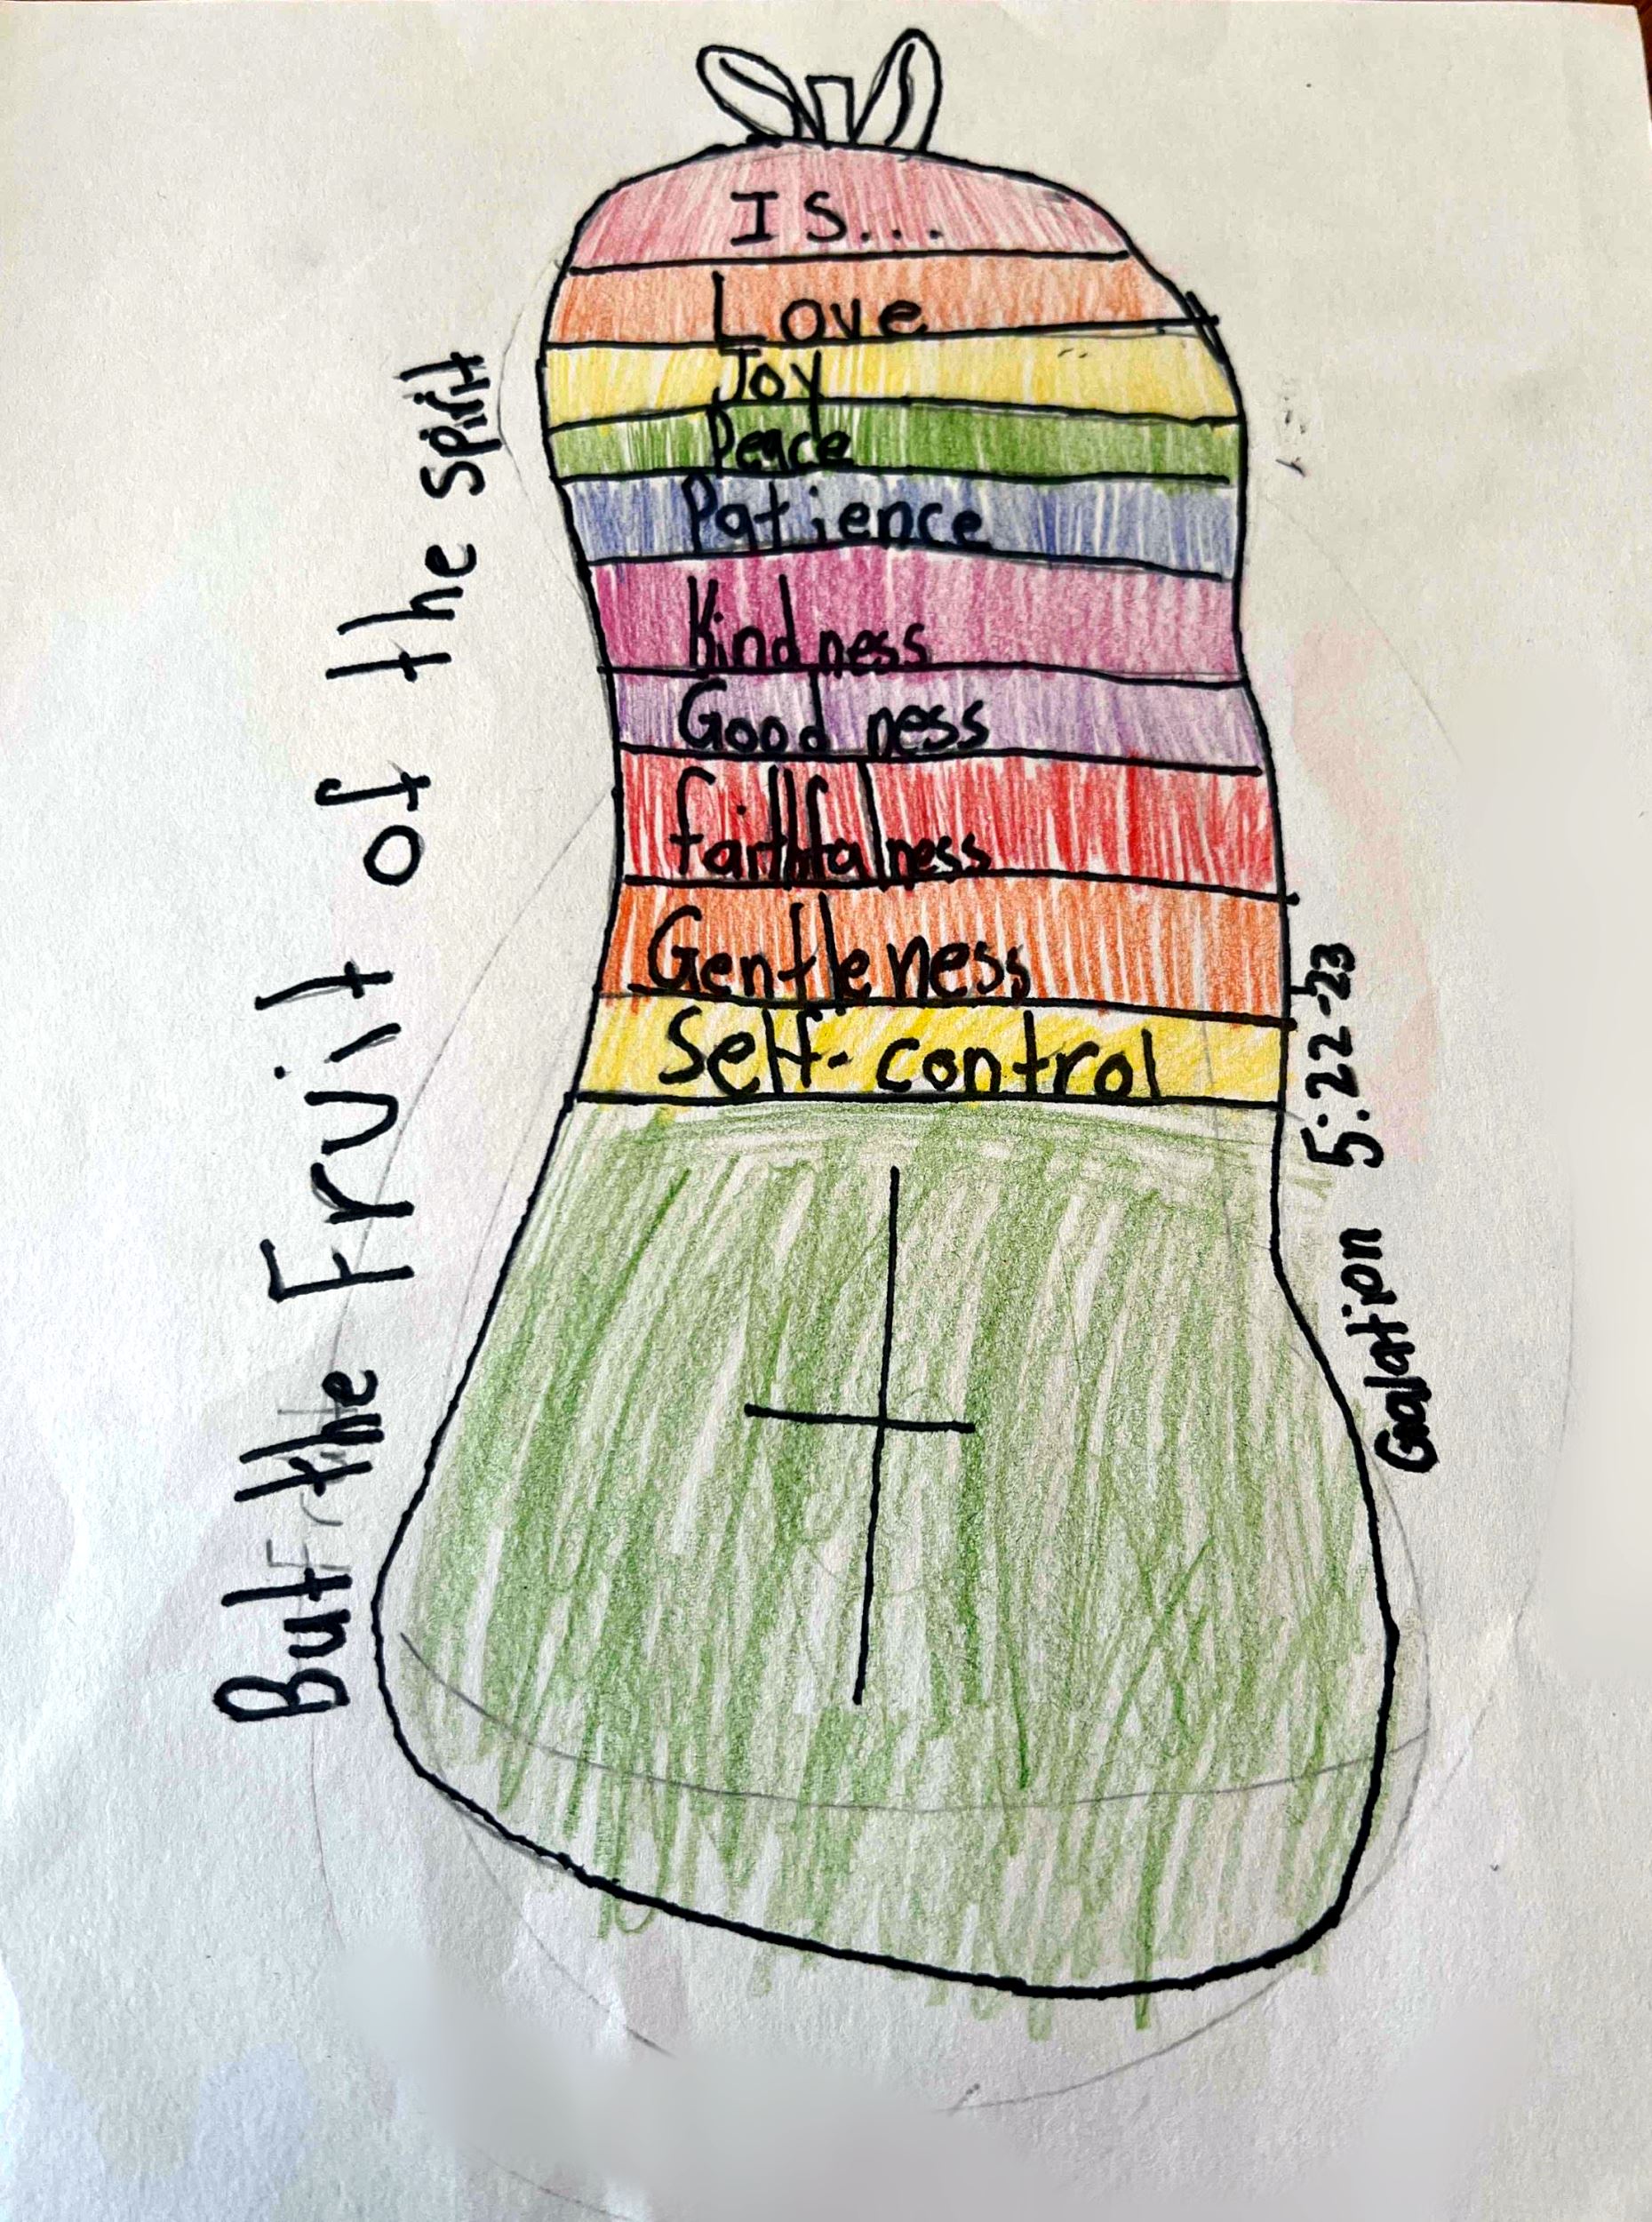 But the Fruit of the spirit
IS...
Love
Joy
Peace
Patience
Kindness
Goodness
faithfulness
Gentleness
Self-control
Galation 5:22-23